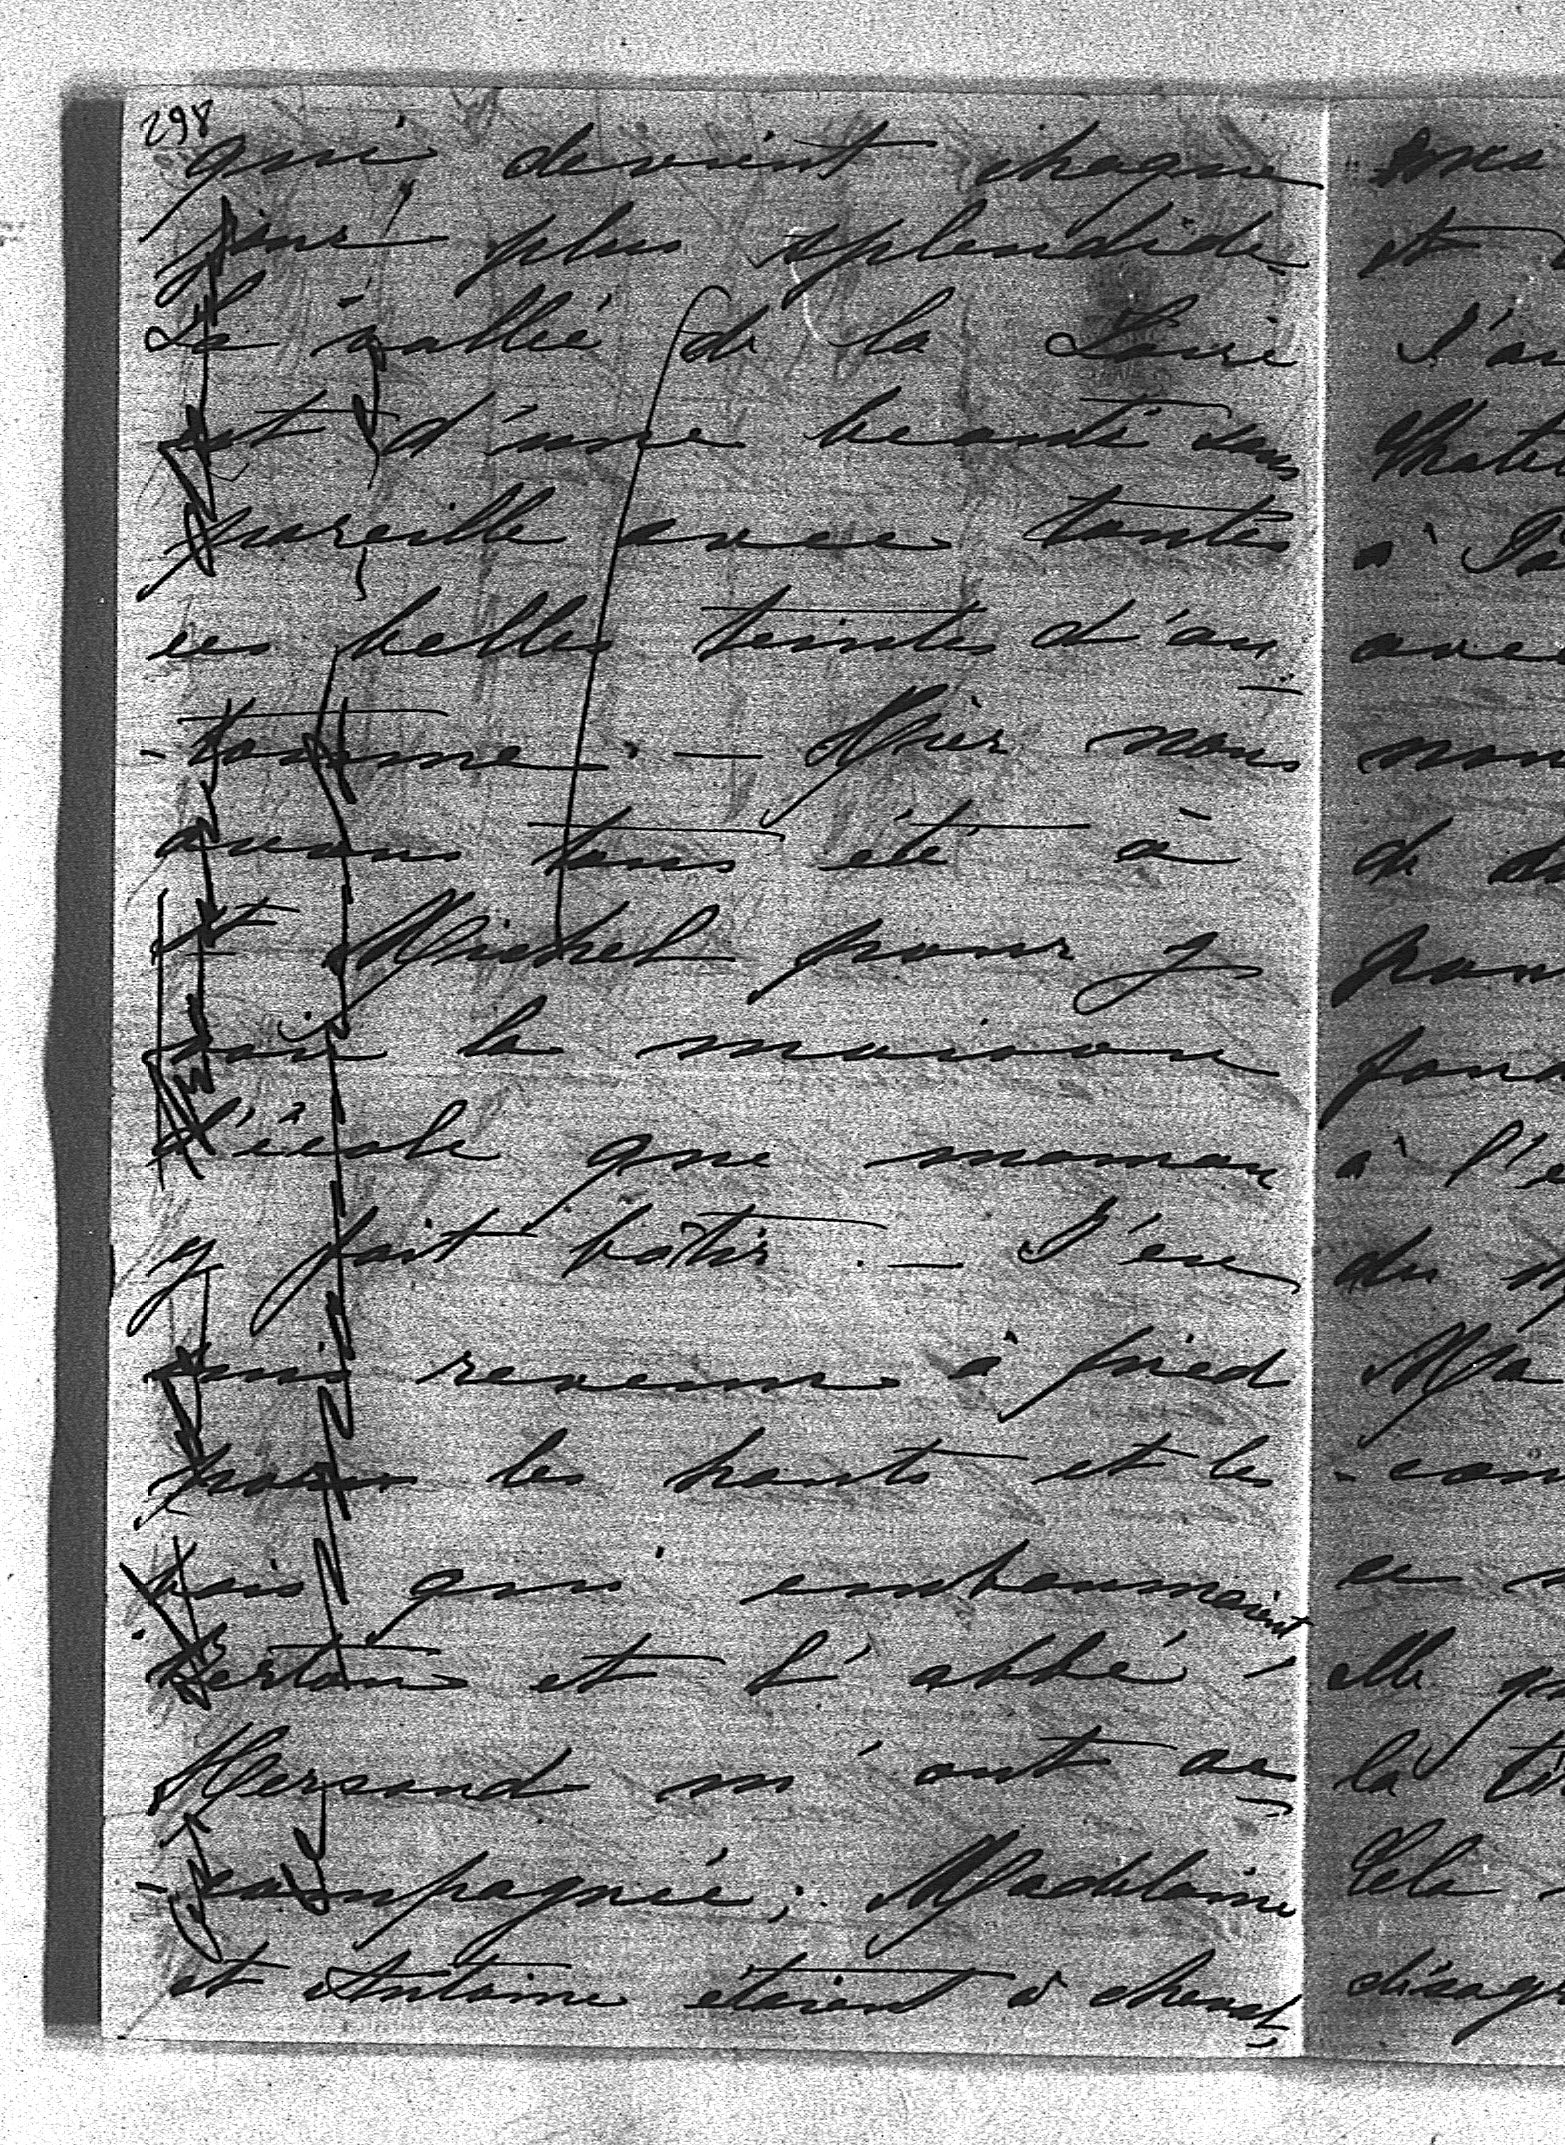 298
qui devient chaque
jour plus splendide.
La vallée de la Loire
est d'une beauté sans
pareille avec toutes
ces belles teintes d'au
-tomne. — Hier nous
avons tous été à
St Michel pour y
voir la maison
d'école que maman
y fait bâtir. — J'en
suis revenue à pied
par les hauts et les
bois qui embaumaient
Berton et l'abbé
Mersand m'ont ac
-compagnée; Madeleine
et Antoine étaient à cheval,
mes
et
J'ai
à
avec
nous
de
pour
à l'é
du
Ma
ce
elle
la
Cela
désag